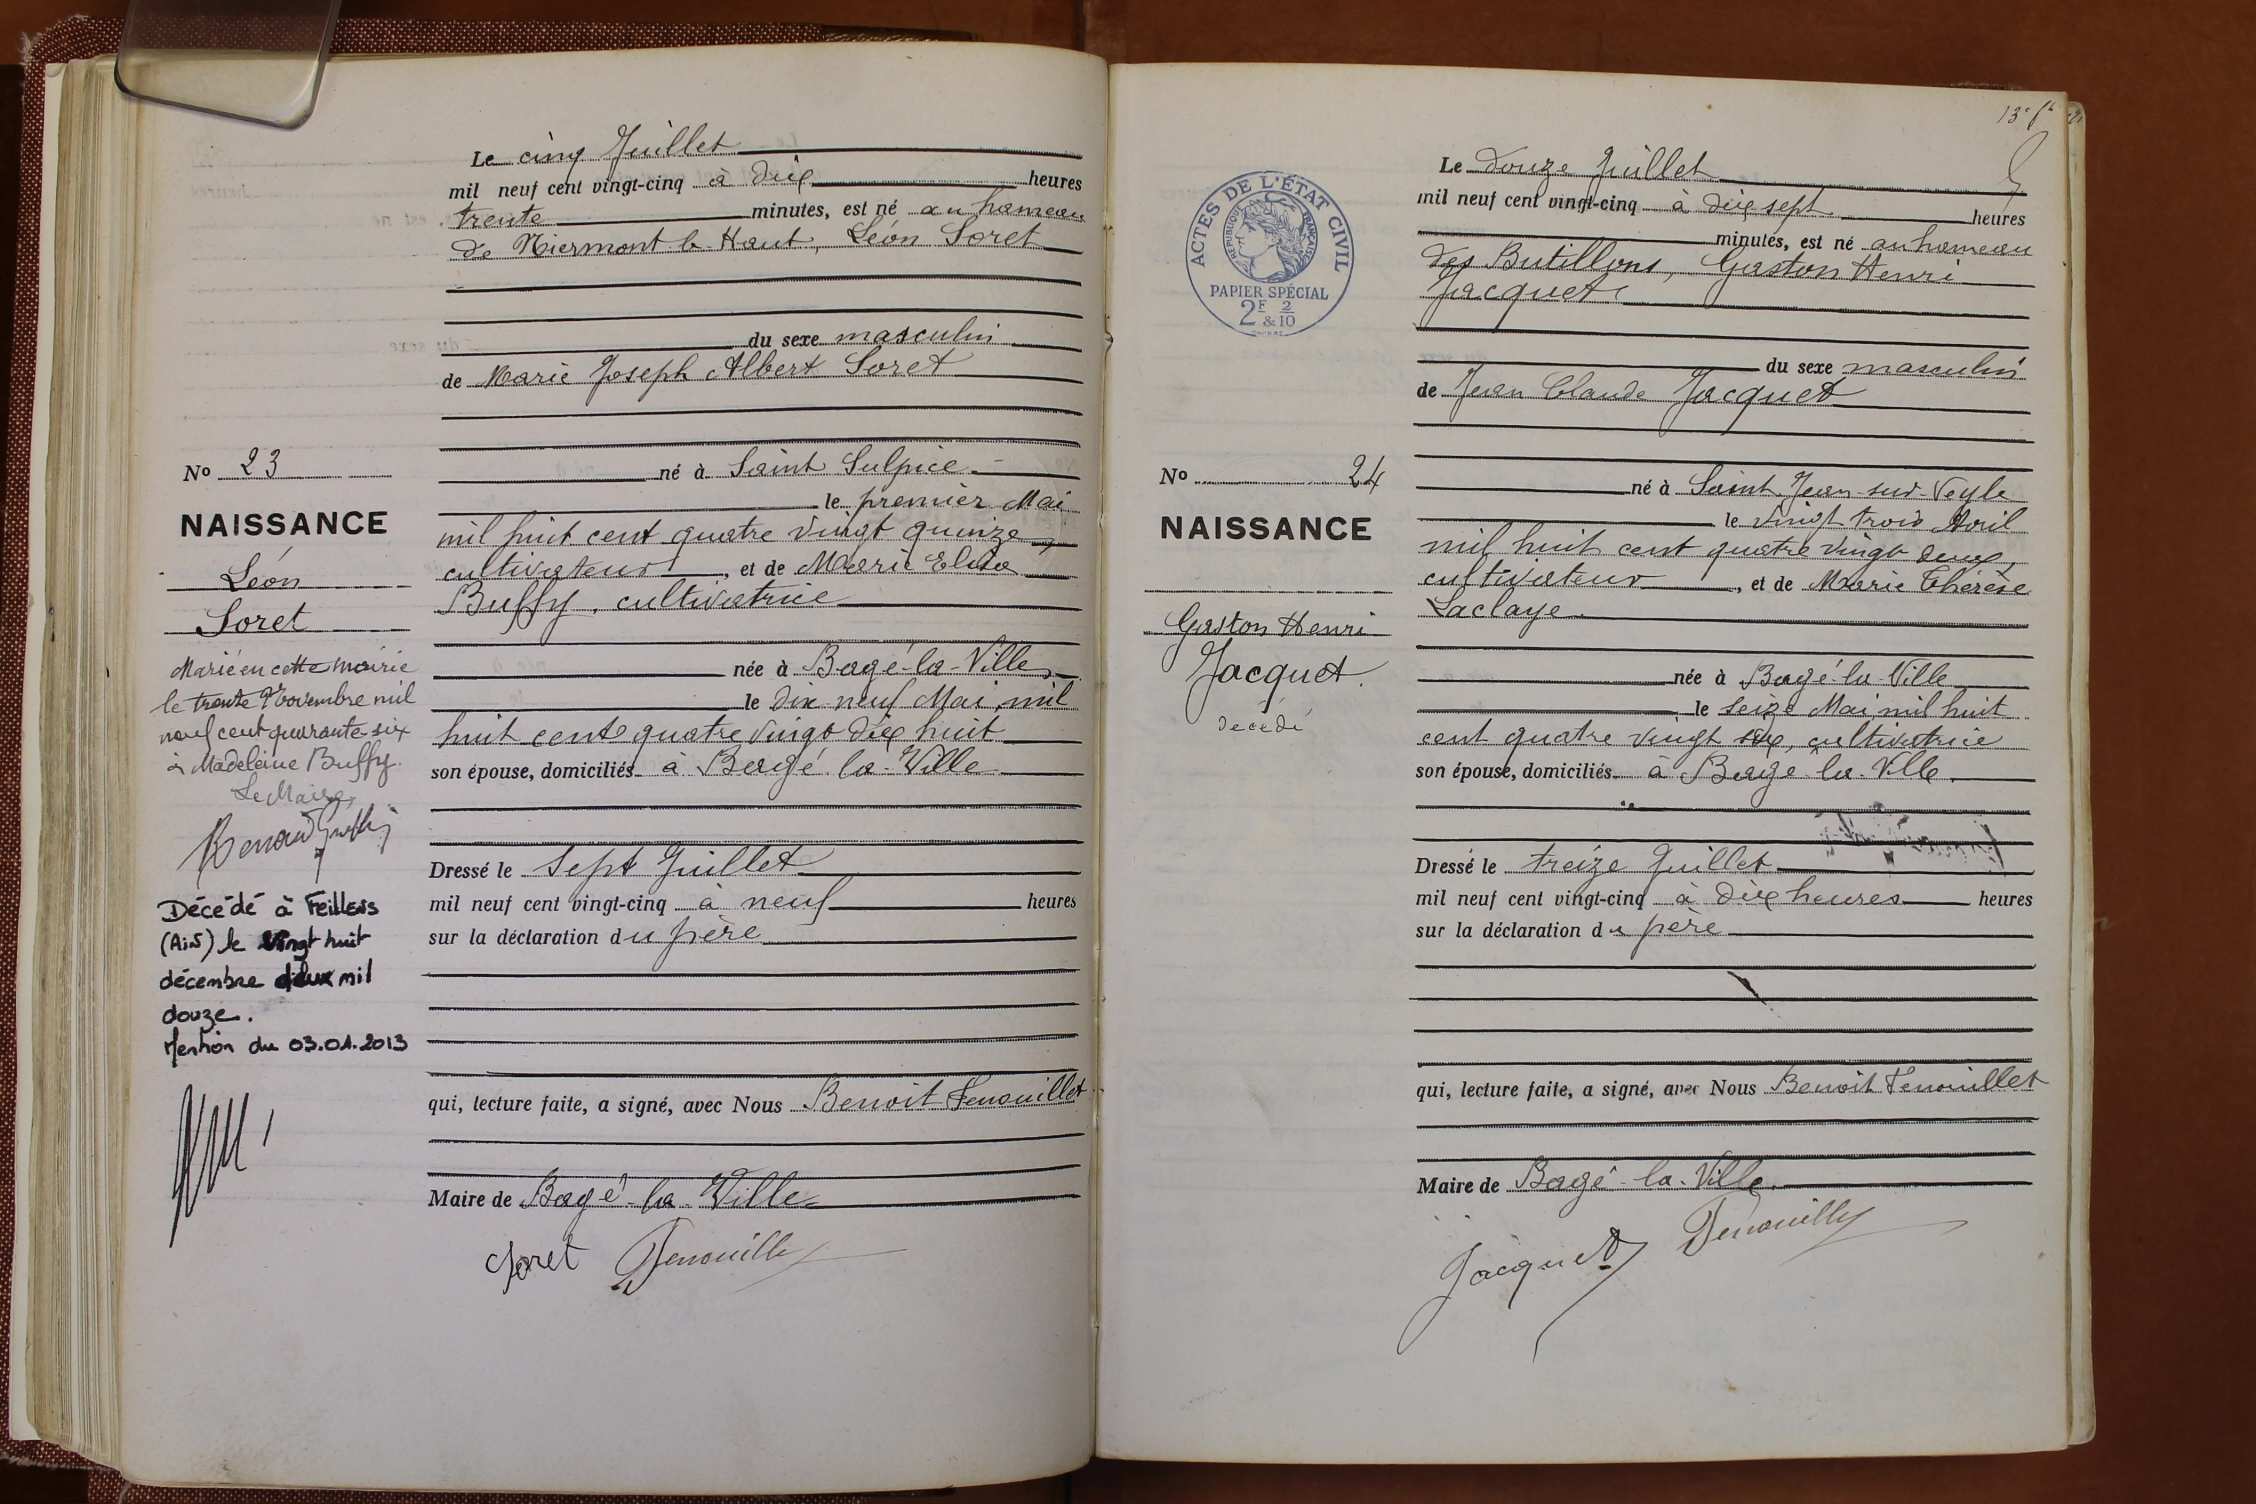 Le cinq Juillet
mil neuf cent vingt-cinq à dix heures
trente minutes, est né au hameau
de Niermont le Haut, Léon Loret
du sexe masculin
de Marie Joseph Albert Loret
No 23
né à Saint Sulpice
le premier Mai
NAISSANCE
mil huit cent quatre vingt quinze,
Léon
cultivateur, et de Marie Elisa
Loret
Buffy, cultivatrice
née à Bagé-la-Ville,
le dix neuf Mai mil
huit cent quatre vingt dix huit
son épouse, domiciliés à Bagé la-Ville
Marié en cette mairie
le trente Novembre mil
neuf cent quarante six
à Madeleine Buffy.
Le Maire,
Décédé à Feillens
(Ain) le vingt huit
décembre deux mil
douze.
Mention du 03.01.2013
Dressé le sept Juillet
mil neuf cent vingt-cinq à neuf heures
sur la déclaration du père
qui, lecture faite, a signé, avec Nous Benoit Fenouillet
Maire de Bagé-la-Ville
Loret Fenouillet
13e
ACTES DE L'ÉTAT CIVIL
RÉPUBLIQUE FRANÇAISE
PAPIER SPÉCIAL
2F 2
& 10
Le douze Juillet
mil neuf cent vingt-cinq à dix sept heures
minutes, est né au hameau
des Butillons, Gaston Henri
Jacquet
du sexe masculin
de Jean Claude Jacquet
No 24
né à Saint Jean-sur-Veyle
le vingt trois Avril
NAISSANCE
mil huit cent quatre vingt deux,
cultivateur, et de Marie Thérèse
Gaston Henri
Laclaye
Jacquet.
décédé
née à Bagé-la-Ville
le seize Mai mil huit
cent quatre vingt six, cultivatrice
son épouse, domiciliés à Bagé la-Ville.
Dressé le treize Juillet
mil neuf cent vingt-cinq à dix heures heures
sur la déclaration du père
qui, lecture faite, a signé, avec Nous Benoit Fenouillet
Maire de Bagé-la-Ville.
Jacquet Fenouillet